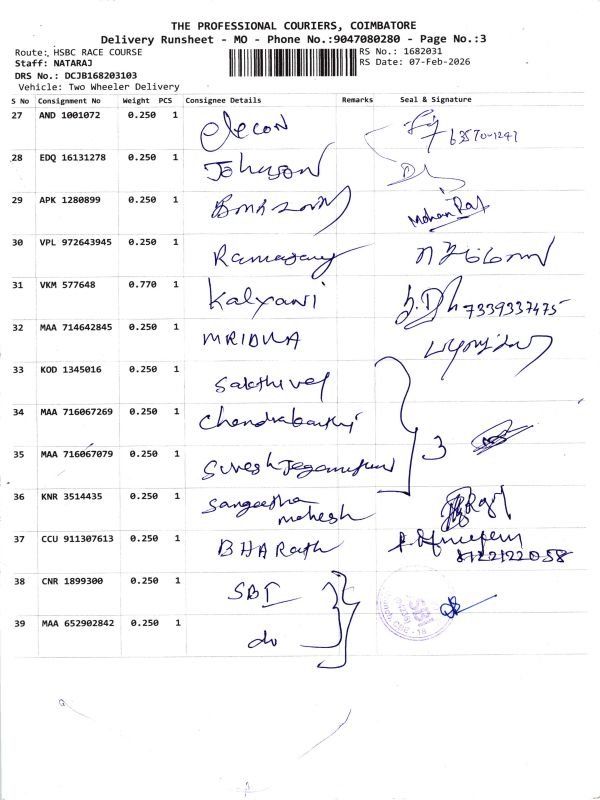 THE PROFESSIONAL COURIERS, COIMBATORE
Delivery Runsheet - MO - Phone No.:9047080280 - Page No.:3
Route: HSBC RACE COURSE
RS No.: 1682031
Staff: NATARAJ
RS Date: 07-Feb-2026
DRS No.: DCJB168203103
Vehicle: Two Wheeler Delivery
S No Consignment No Weight PCS Consignee Details Remarks Seal & Signature
27 AND 1001072 0.250 1 elecon
28 EDQ 16131278 0.250 1 Johnson
29 APK 1280899 0.250 1 Mohan Raj
30 VPL 972643945 0.250 1 Ramasamy
31 VKM 577648 0.770 1 Kalyani 7339337475
32 MAA 714642845 0.250 1 MRIDULA
33 KOD 1345016 0.250 1 Sakthivel
34 MAA 716067269 0.250 1
35 MAA 716067079 0.250 1 Suresh 3
36 KNR 3514435 0.250 1 Sangeetha
mahesh
37 CCU 911307613 0.250 1 BHARath
38 CNR 1899300 0.250 1 SBI
39 MAA 652902842 0.250 1 do